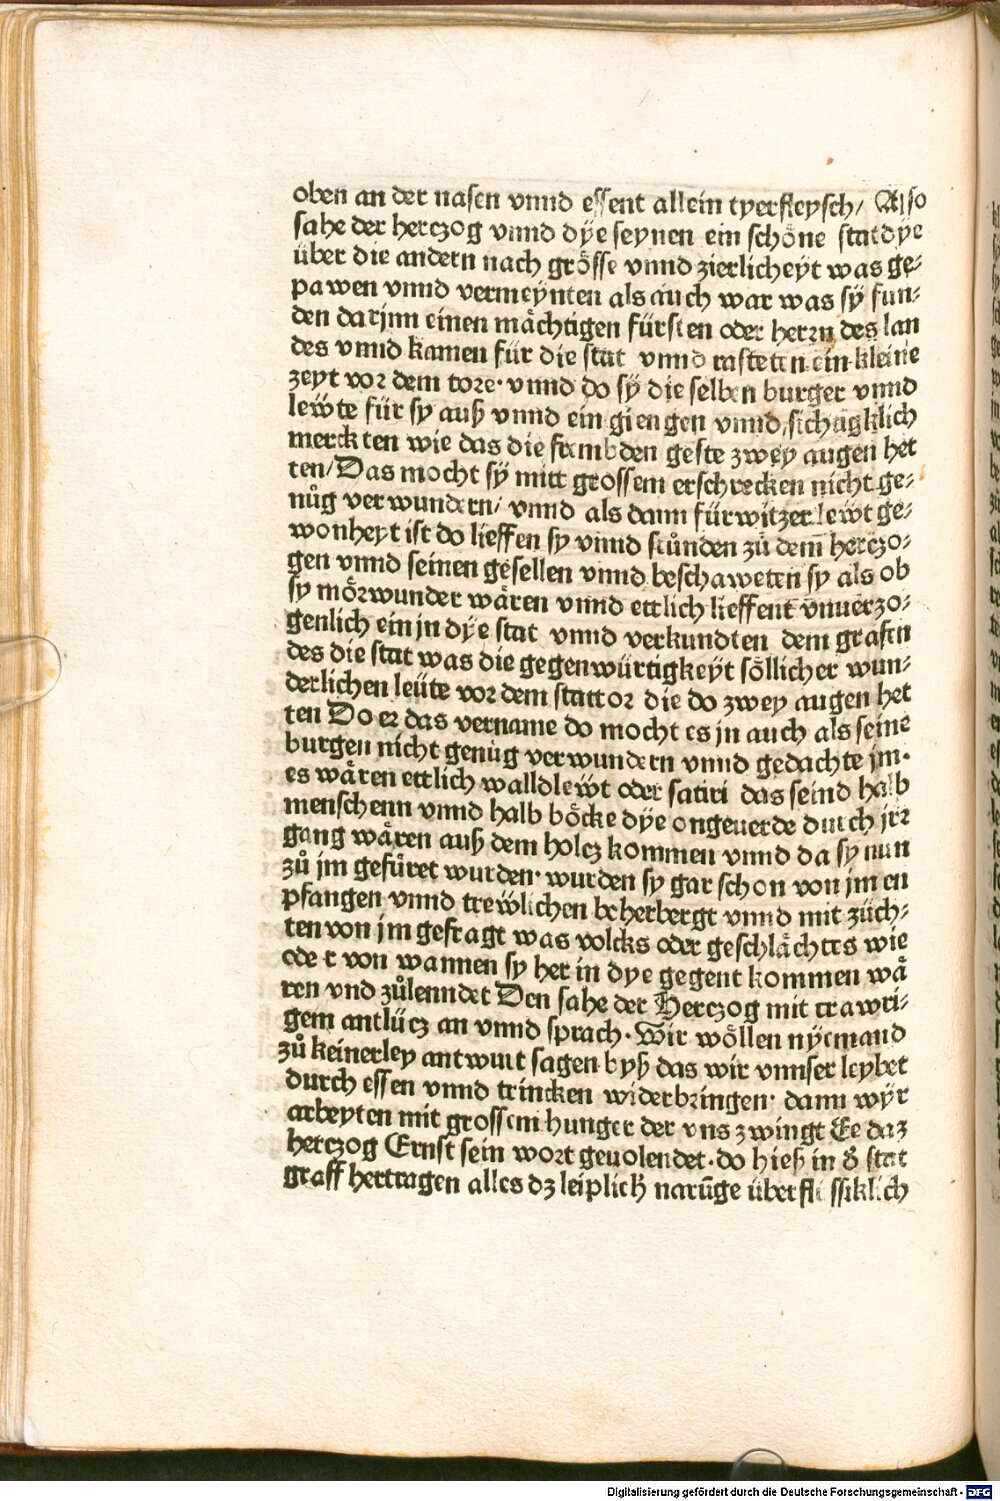 oben an der nasen vnnd essent allein tyerfleysch/ Also
sahe der herczog vnnd dÿe seynen ein schöne stat dÿe
über die andern nach grösse vnnd zierlicheÿt was ge⸗
pawen vnnd vermeÿnten als auch war was sÿ fun⸗
den darjnn einen mächtigen fürsten oder herrn des lan
des vnnd kamen für die stat vnnd rasteten ein kleine
zeyt vor dem tore· vnnd do sÿ die selben burger vnnd
lewte für sy auß vnnd ein giengen vnnd sichtigklich
merckten wie das die frembden geste zwey augen het
ten/ Das mocht sÿ mitt grossem erschrecken nicht ge⸗
nůg verwundern/ vnnd als dann fürwitzer lewt ge⸗
wonheyt ist do lieffen sy vnnd stůnden zů dem herczo⸗
gen vnnd seinen gesellen vnnd beschaweten sy als ob
sy mörwunder wären vnnd ettlich lieffent vnuerzo⸗
genlich ein jn dÿe stat vnnd verkundten dem grafen
des die stat was die gegenwürtigkeÿt söllicher wun⸗
derlichen leüte vor dem stattor die do zwey augen het
ten Do er das vername do mocht es jn auch als seine
burgen nicht genůg verwundern vnnd gedachte jm·
es wären ettlich walldlewt oder satiri das seind halb
menschenn vnnd halb böcke dÿe ongeuerde durch jrr
gang wären auß dem holcz kommen vnnd da sy nun
zů jm gefüret wurden· wurden sy gar schon von jm en
pfangen vnnd trewlichen beherbergt vnnd mit züch⸗
ten von jm gefragt was volcks oder geschlächtes wie
oder von wannen sy her in dye gegent kommen wä
ren vnd zůlenndet Den sahe der Herczog mit trawri⸗
gem antlücz an vnnd sprach· Wir wöllen nÿemand
zů keinerley antwurt sagen byß das wir vnnser leybet
durch essen vnnd trincken widerbringen· dann wÿr
arbeyten mit grossem hunger der vns zwingt Ee daz
herczog Ernst sein wort geuolendet· do hieß in đ stat
graff herttragen alles dz leiplich narūge überflüssiklich
Digitalisierung gefördert durch die Deutsche Forschungsgemeinschaft - DFG